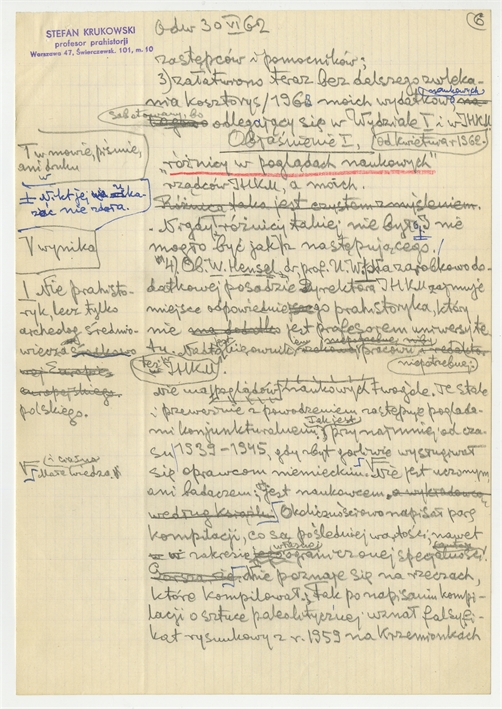 STEFAN KRUKOWSKI
profesor prahistorji
Warszawa 47, Świerczewsk. 101, m. 10
odw 30 VI 62
6
zastępców i pomocników;
3) załatwiono teraz bez dalszego zwleka-
nia kosztorys/1968 moich wydatków naukowych
sabotowany, bo
odlegający się w Wydziale I i w IHKM
od kwietnia 1968.
Objaśnienie I,
"różnicy w poglądach naukowych"
rządców IHKM, a moich.
Różnica taka jest czystem zmyśleniem.
Nigdy różnicy takiej nie było, i nie
mogło być jak/a następującego!
4) Ob. W. Hensel, dr, prof. U.W., dla zarobkowo do-
datkowej posadzie Dyrektora IHKM zajmuje
miejsce odpowiedniego prahistoryka, który
nie jest profesorem uniwersyte-
tu.
też i IHKM
niepotrzebnej
nie ma poglądów naukowych Stale
i przeważnie z powodzeniem zastępuje pogląda-
mi konjunkturalnemi
Tak jest
przynajmniej od cza-
su 1939-1945, gdy był gorliwie wysługiwał
się oprawcom niemieckim. Nie jest uczonym,
ani badaczem; jest naukowcem
według książki. Okolicznościowo napisał parę
kompilacji, co są pośledniej wartości, nawet
w zakresie własnej ograniczonej specjalności.
nie poznaje się na rzeczach,
które kompilował. Tak po napisaniu kompi-
lacji o sztuce paleolitycznej uznał falsyfi-
kat rysunkowy z r. 1959 na Krzemionkach
T w mowie, piśmie,
ani druku
w
I Nikt jej
zać nie zdoła.
V wynika
I Nie prahisto-
ryk, lecz tylko
archeolog średnio-
wiecza
europejskiego
polskiego.
i ciasna